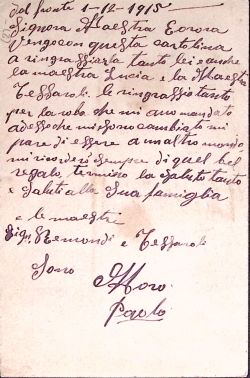 dal fronte 1-12-1915
Signora Maestra Eorora
Vengo con questa cartolina
a ringraziarla tanto lei anche
la maestra Lucia e la Maestra
Tessaroli. le ringrazio tanto
per la roba che mi ano mandato
adesso che mi sono cambiato mi
pare di essere a un altro mondo
mi ricorderò sempre di quel bel
regalo, termino la saluto tanto
e Saluti alla Sua famiglia
e le maestre
Sig. Remondi e Tessaroli
Sono
Moro
Paolo